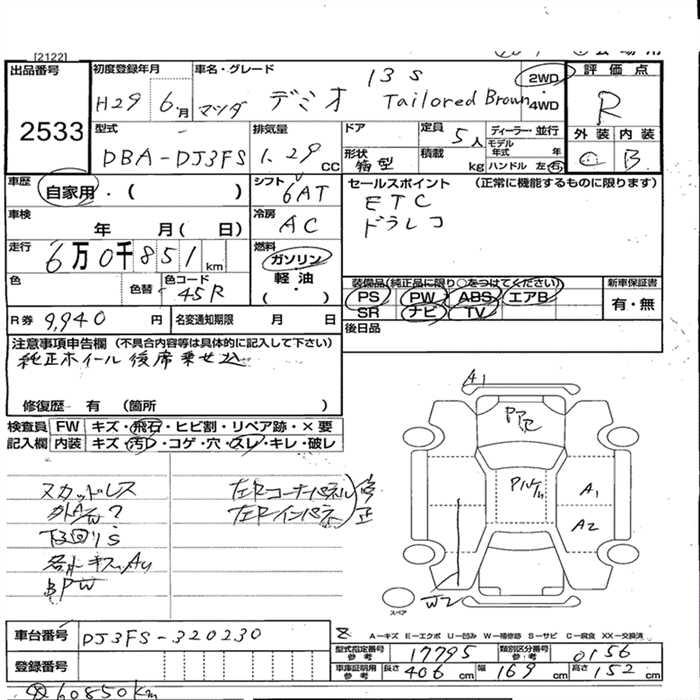 [2122]
出品番号 初度登録年月 車名・グレード 13S 2WD 評価点
2533 H29 6月 マツダ デミオ Tailored Brown ・4WD R
型式 排気量 ドア 定員 5人 ディーラー・並行 外装 内装
DBA-DJ3FS 1.29 CC 形状 箱型 積載 kg モデル年式 年 ハンドル 左・右 C B
車歴 自家用・( ) シフト 6AT セールスポイント (正常に機能するものに限ります)
車検 年 月( 日) 冷房 AC ETC
走行 6万0千851km 燃料 ガソリン・軽油・( ) ドラレコ
色 色替 色コード 45R 装備品(純正品に限り○をつけてください) 新車保証書
PS PW ABS エアB 有・無
SR ナビ TV
R券 9,940円 名変通知期限 月 日 後日品
注意事項申告欄(不具合内容等は具体的に記入して下さい)
純正ホイール後席乗せ込
修復歴・有(箇所 )
検査員 FW キズ・飛石・ヒビ割・リペア跡・×要
記入欄 内装 キズ・汚・コゲ・穴・スレ・キレ・破レ
スカッドレス
外A/W?
下回りS
各キズ、AU
BPW
左Rコーナーパネル
左Rインパネ
修正
A1
PP、R
A1
A2
W2
スペア
8 A-キズ E-エクボ U-凹み W-補修跡 S-サビ C-腐食 XX-交換済
車台番号 DJ3FS-320230
登録番号
型式指定番号 参考 17795 類別区分番号 参考 0156
車庫証明用 参考 長さ 406cm 幅 169cm 高さ 152cm
60850km